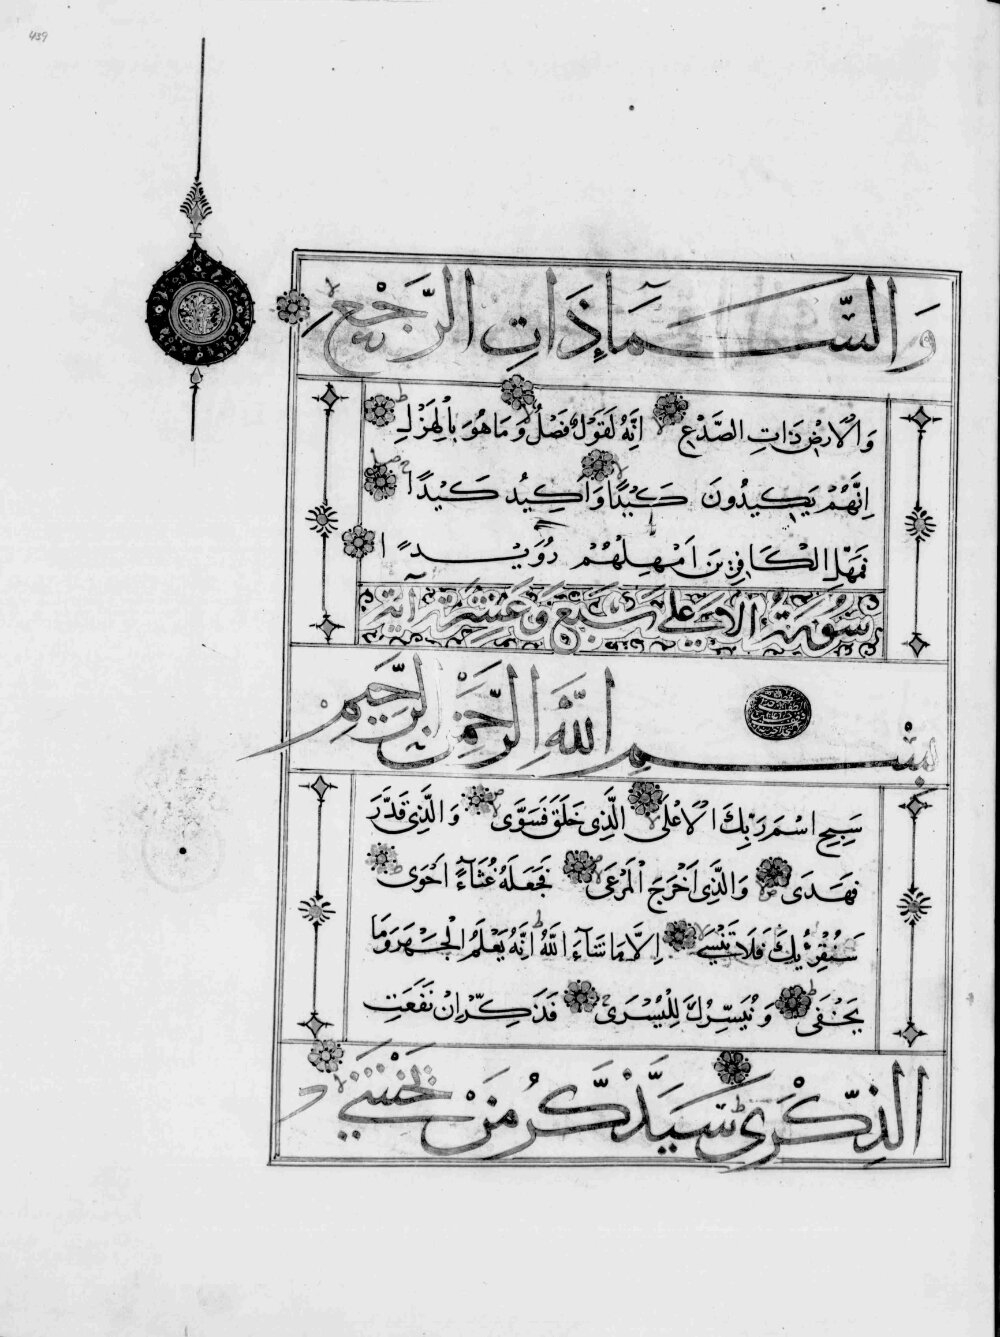 439
وَالسَّمَاءِ ذَاتِ الرَّجْعِ
وَالْاَرْضِ ذَاتِ الصَّدْعِ اِنَّهُ لَقَوْلٌ فَصْلٌ وَمَا هُوَ بِالْهَزْلِ
اِنَّهُمْ يَكِيدُونَ كَيْدًا وَاَكِيدُ كَيْدًا
فَمَهِّلِ الْكَافِرِينَ اَمْهِلْهُمْ رُوَيْدًا
سُورَةُ الْاَعْلَى سَبْعَ وَعَشْرَةَ آيَة
بِسْمِ اللَّهِ الرَّحْمَنِ الرَّحِيمِ
سَبِّحِ اسْمَ رَبِّكَ الْاَعْلَى الَّذِى خَلَقَ فَسَوَّى وَالَّذِى قَدَّرَ
فَهَدَى وَالَّذِى اَخْرَجَ الْمَرْعَى فَجَعَلَهُ غُثَآءً اَحْوَى
سَنُقْرِئُكَ فَلَا تَنْسَى اِلَّا مَا شَآءَ اللَّهُ اِنَّهُ يَعْلَمُ الْجَهْرَ وَمَا
يَخْفَى وَنُيَسِّرُكَ لِلْيُسْرَى فَذَكِّرْ اِنْ نَفَعَتِ
الذِّكْرَى سَيَذَّكَّرُ مَنْ يَخْشَى